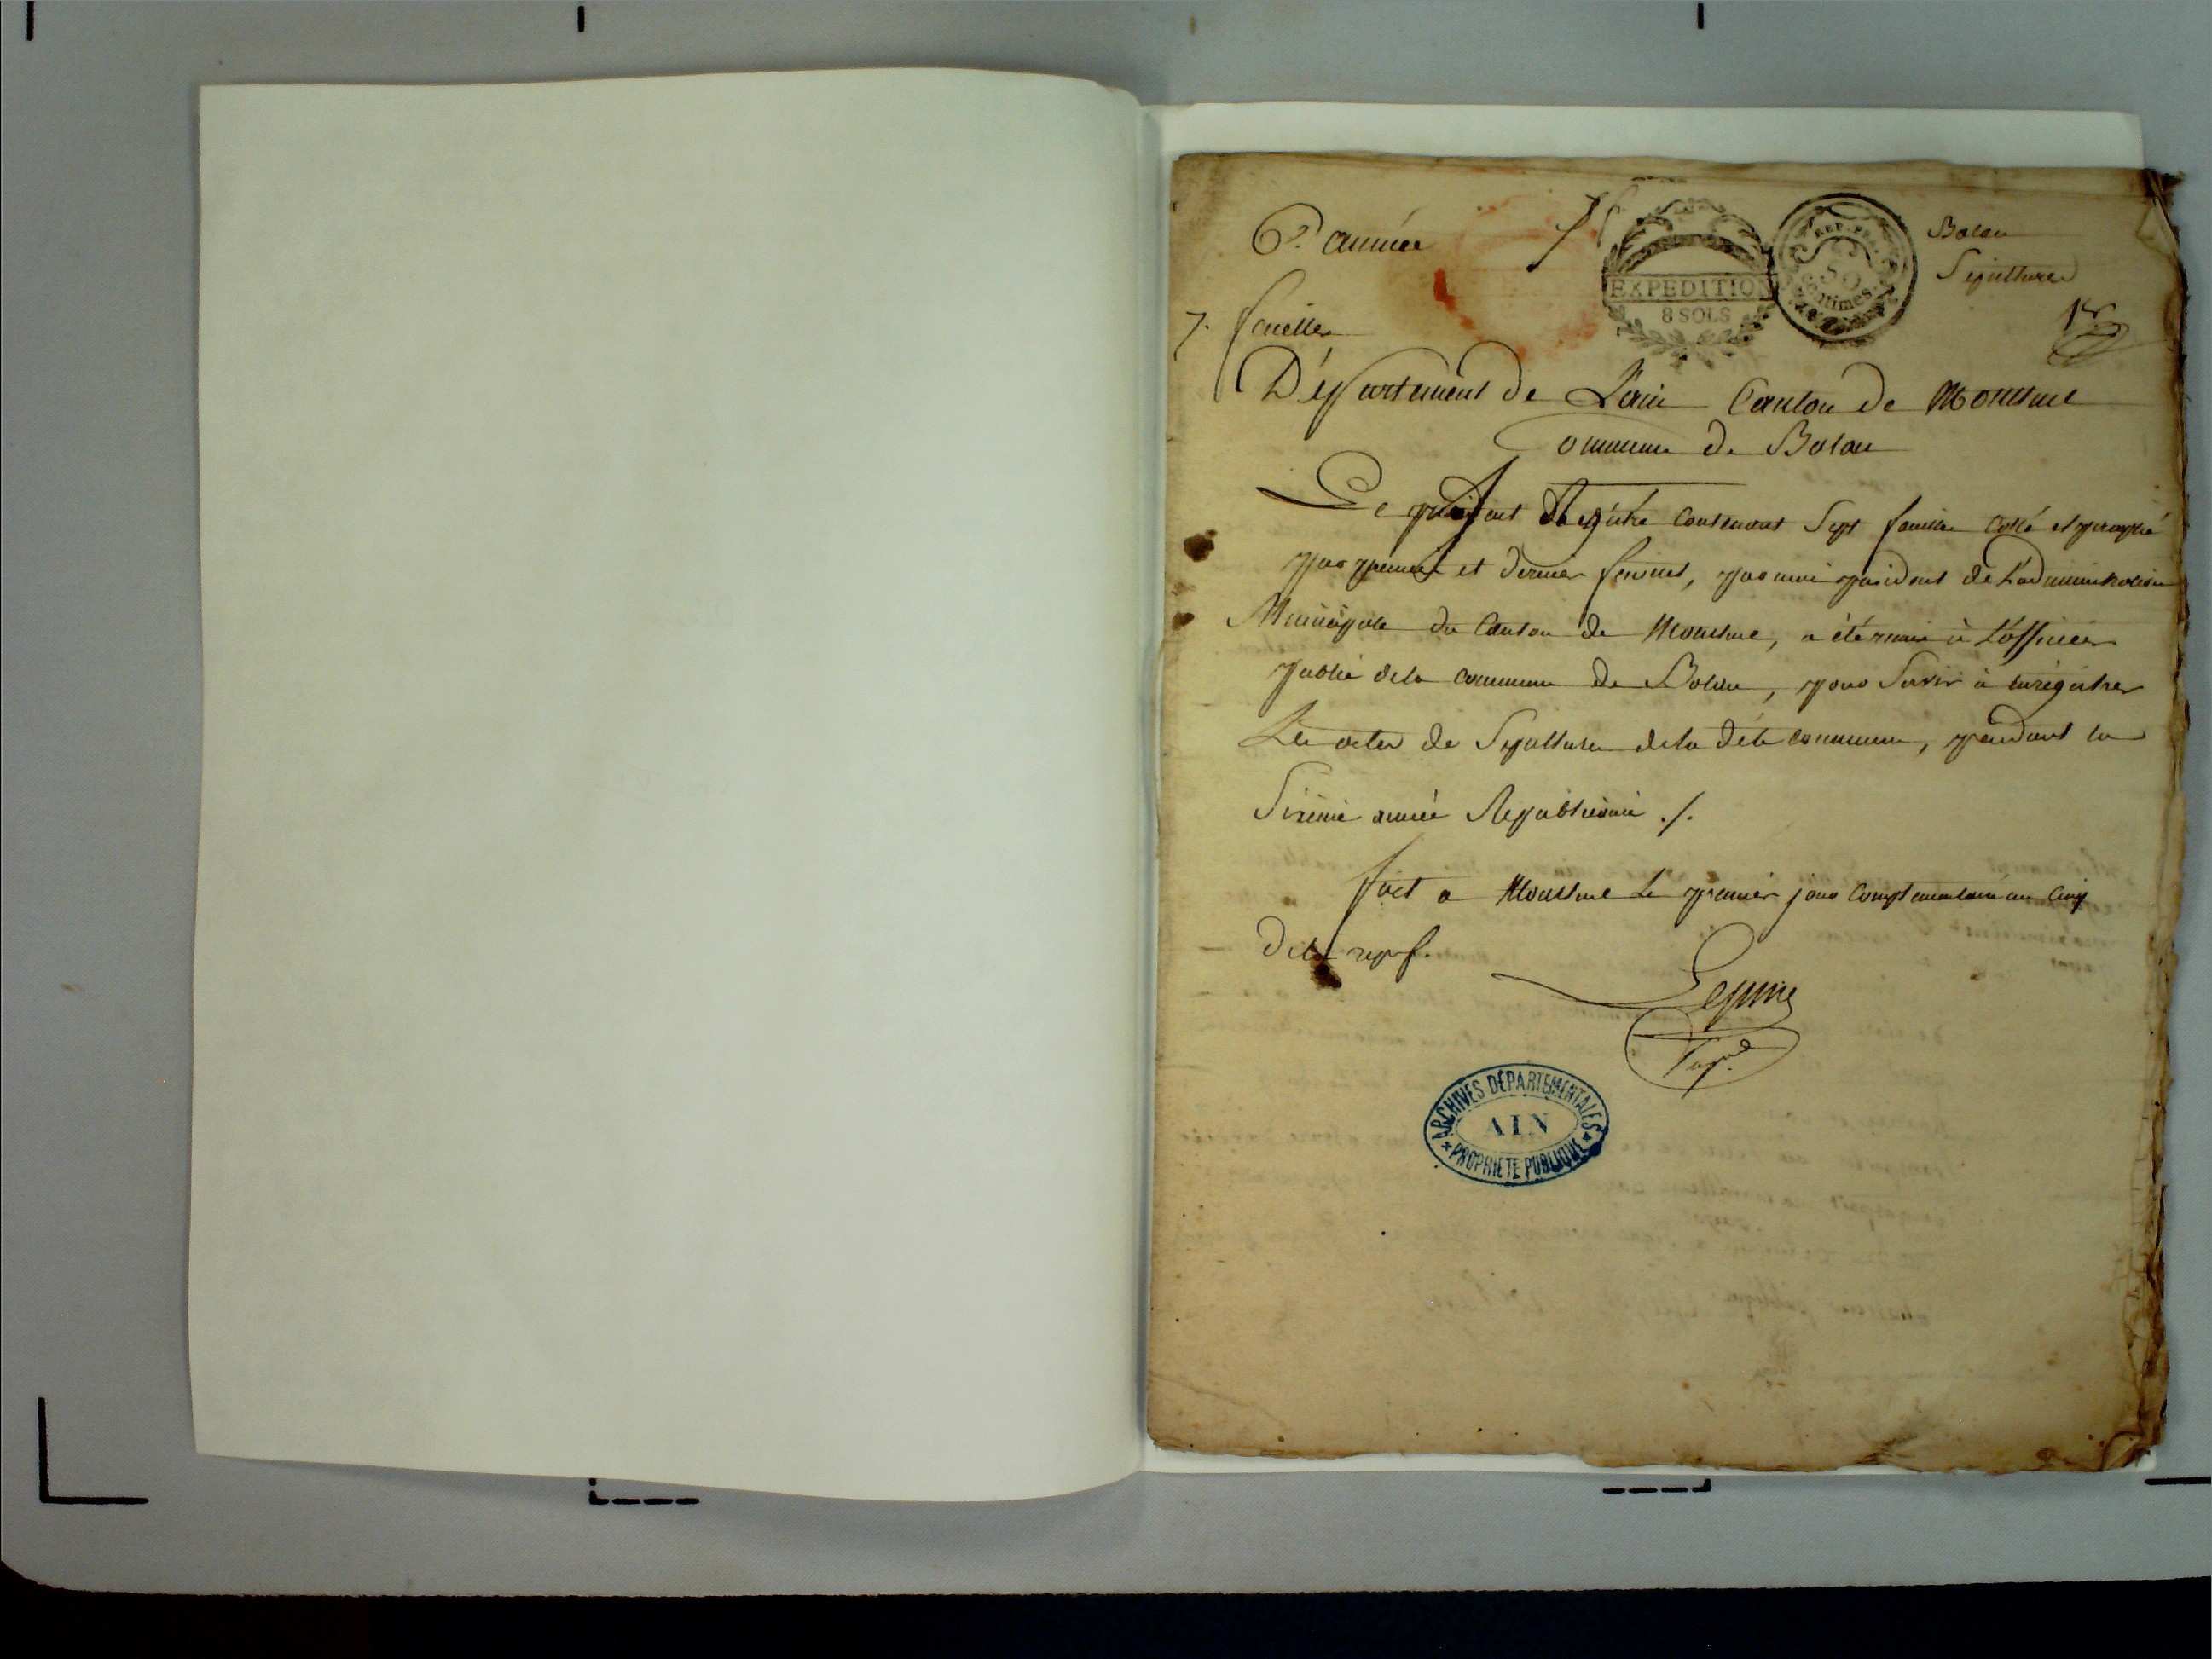 6e année
Balan
Sépultures
REP. FRA.
50
centimes.
EXPEDITION
8 SOLS
1er
7. feuilles
Département de L'ain Canton de Montluel
Commune de Balan
Le présent Régitre contenant Sept feuilles Cotté et paraphé
par premier et dernier feuillet, par moi président de L'administration
Municipale du Canton de Montluel, a été remis à L'officier
public de la commune de Balan, pour Servir à enrégitrer
Les actes de Sépulture de la dite commune, pendant la
Sixième année Républicaine ./.
fait a Montluel Le premier jour Complementaire an Cinq
de la rep. f.
ARCHIVES DÉPARTEMENTALES
AIN
PROPRIETE PUBLIQUE